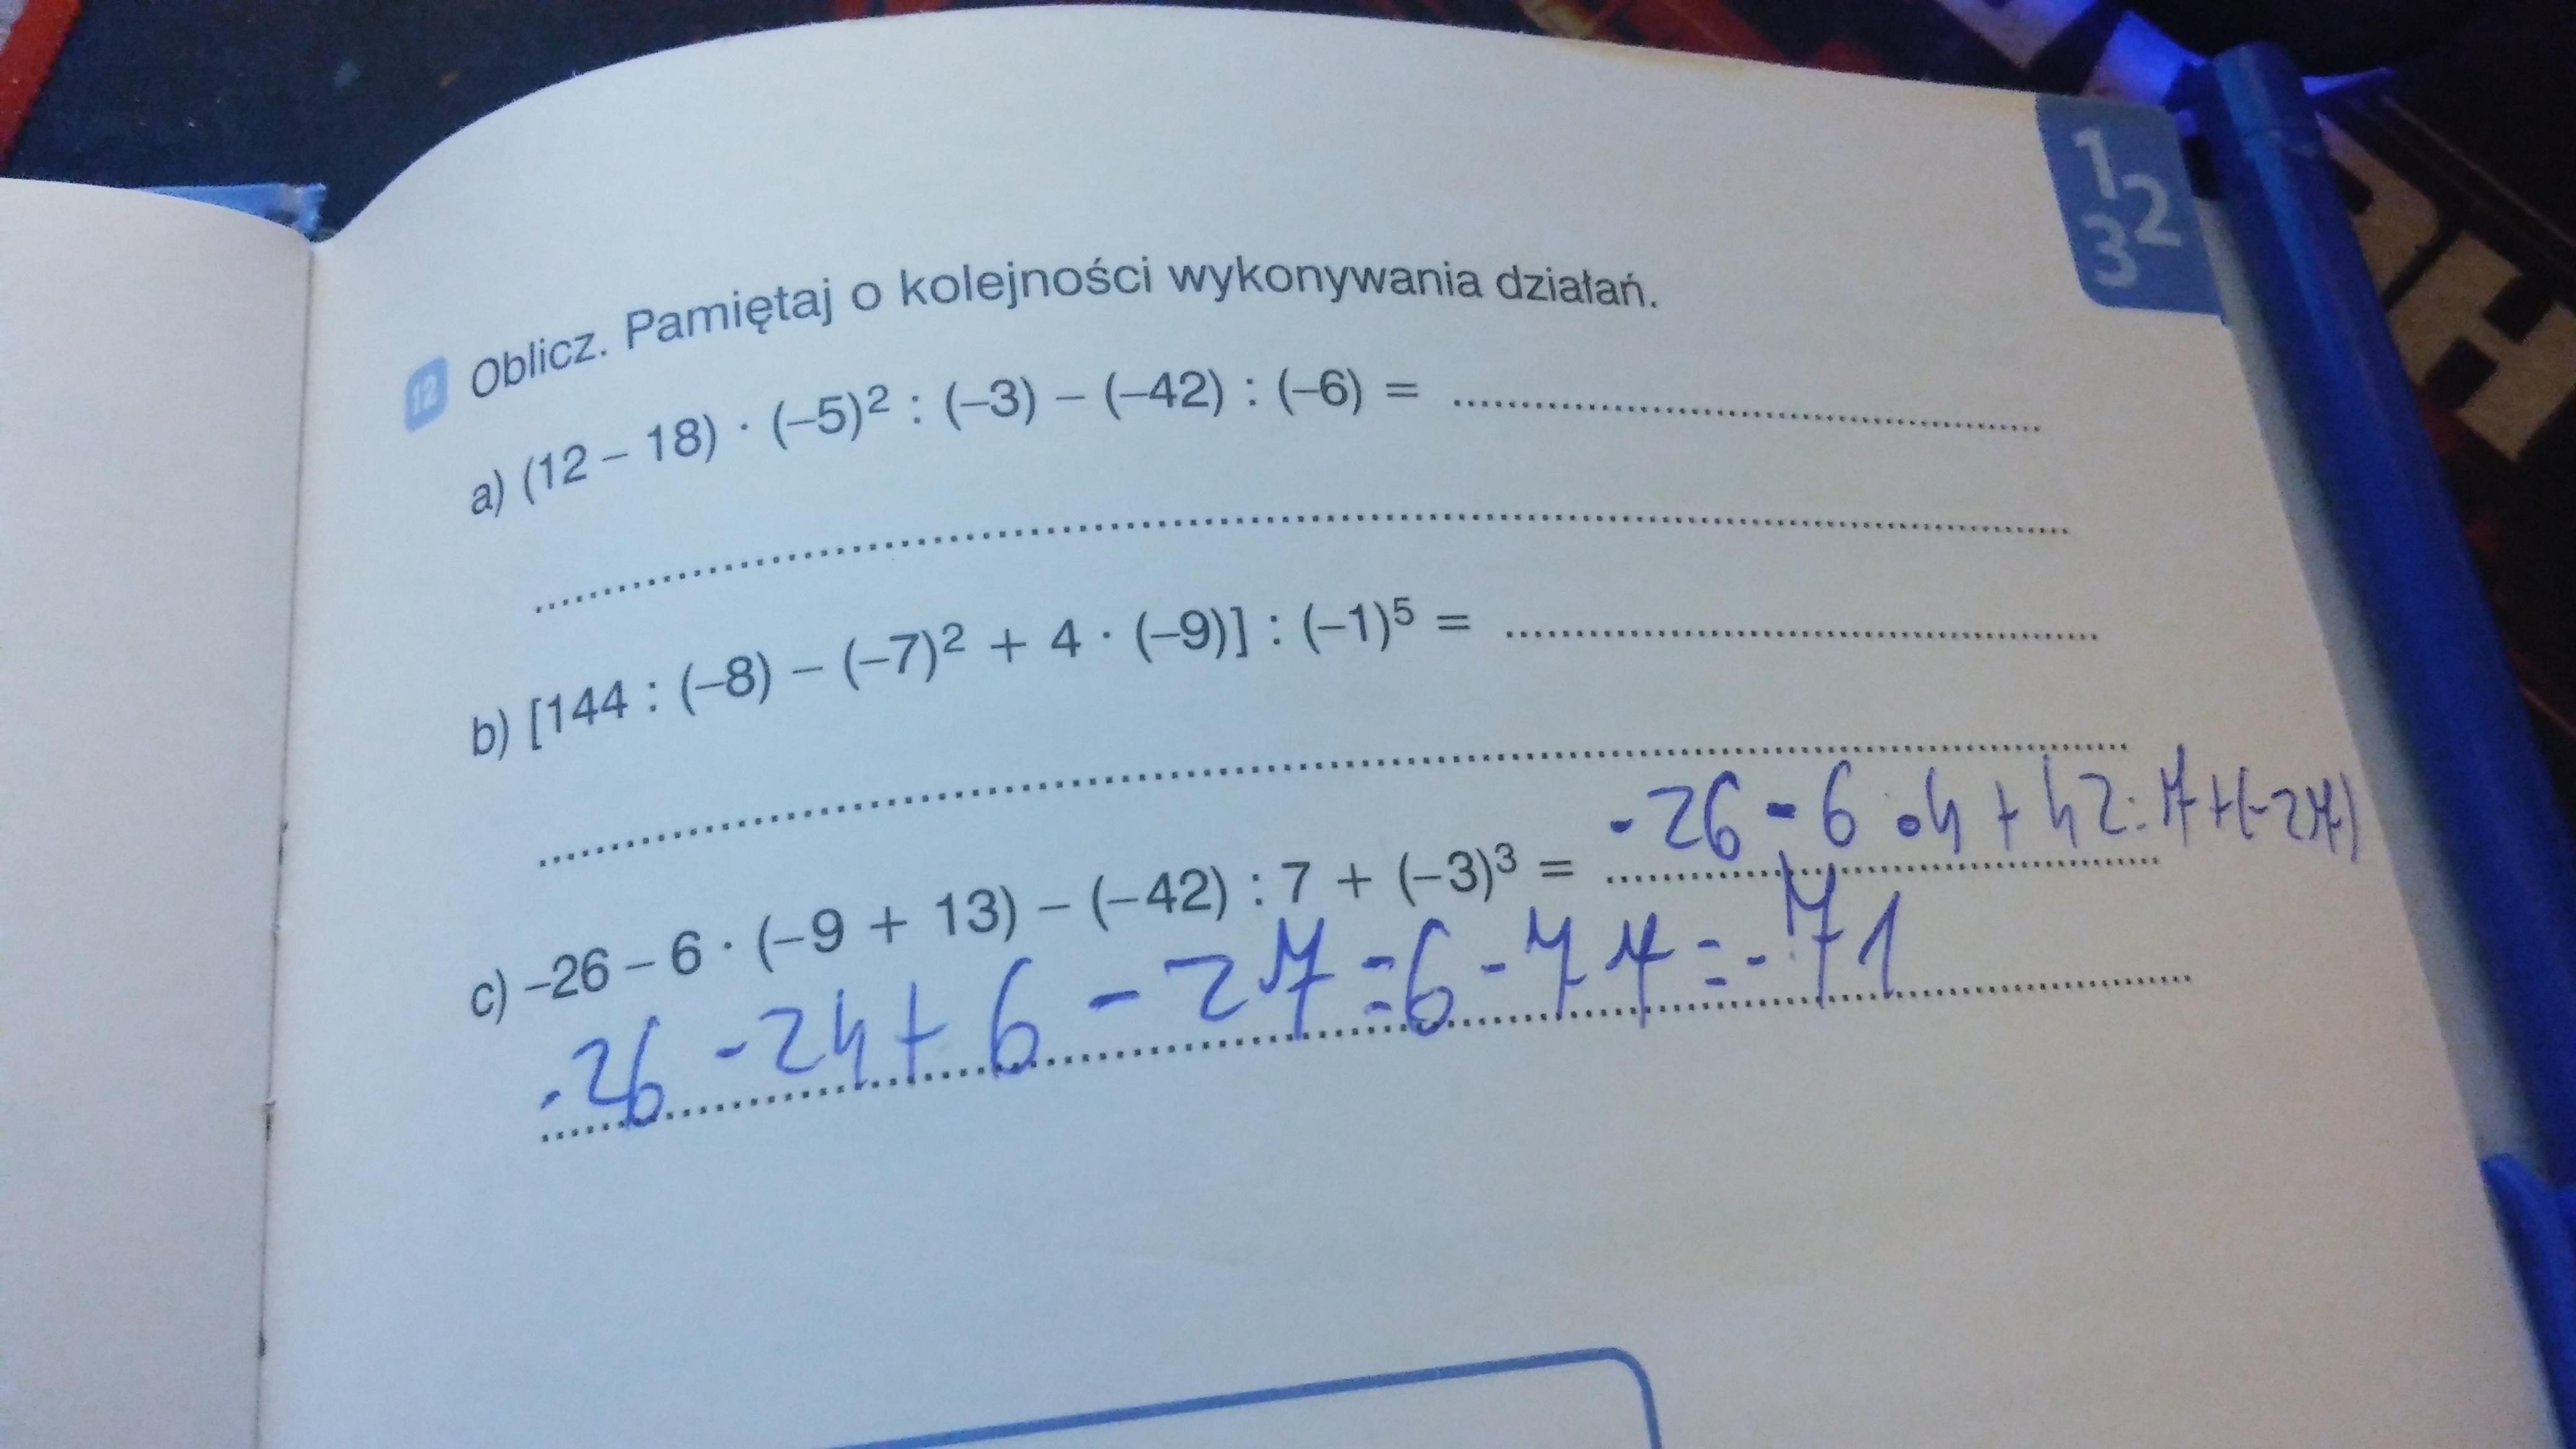 1
2
3
12 Oblicz. Pamiętaj o kolejności wykonywania działań.
a) (12 – 18) · (–5)² : (–3) – (–42) : (–6) = ........
b) [144 : (–8) – (–7)² + 4 · (–9)] : (–1)⁵ = ........
-26 - 6 · 4 + 42 : 7 + (-27)
c) –26 – 6 · (–9 + 13) – (–42) : 7 + (–3)³ = ........
-26 - 24 + 6 - 27 = 6 - 77 = -71